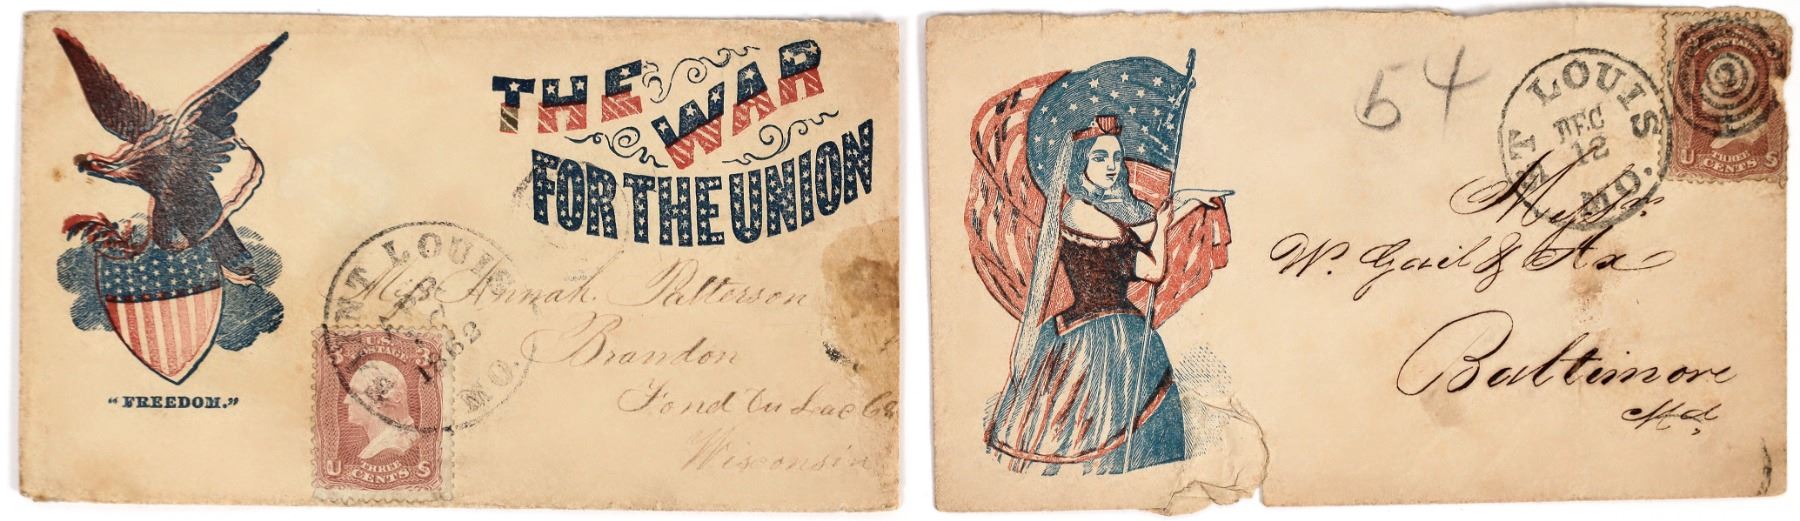 THE WAR
FOR THE UNION
"FREEDOM."
SAINT LOUIS
1862
MO.
U.S.
POSTAGE
3 3
U THREE S
CENTS
Miss Annah Patterson
Brandon
Fond Du Lac Co
Wisconsin
54
ST LOUIS
DEC
12
MO.
U THREE S
CENTS
Messrs
W. Gail & Ax
Baltimore
Md,